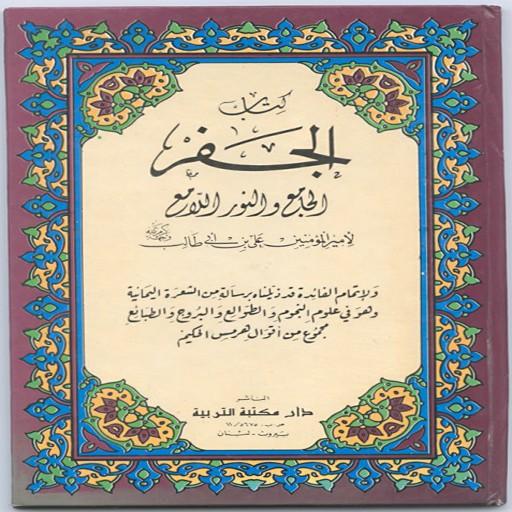 كتاب
الجفر
الجامع والنور اللامع
لأمير المؤمنين علي بن أبي طالب كرم الله وجهه
ولإتمام الفائدة قد ذيلناه برسالة من الشعرة اليمانية
وهو في علوم النجوم والطوالع والبروج والطبائع
مجموع من أقوال هرمس الحكيم
الناشر
دار مكتبة التربية
ص.ب. ٥٦٧٥/١١
بيروت - لبنان